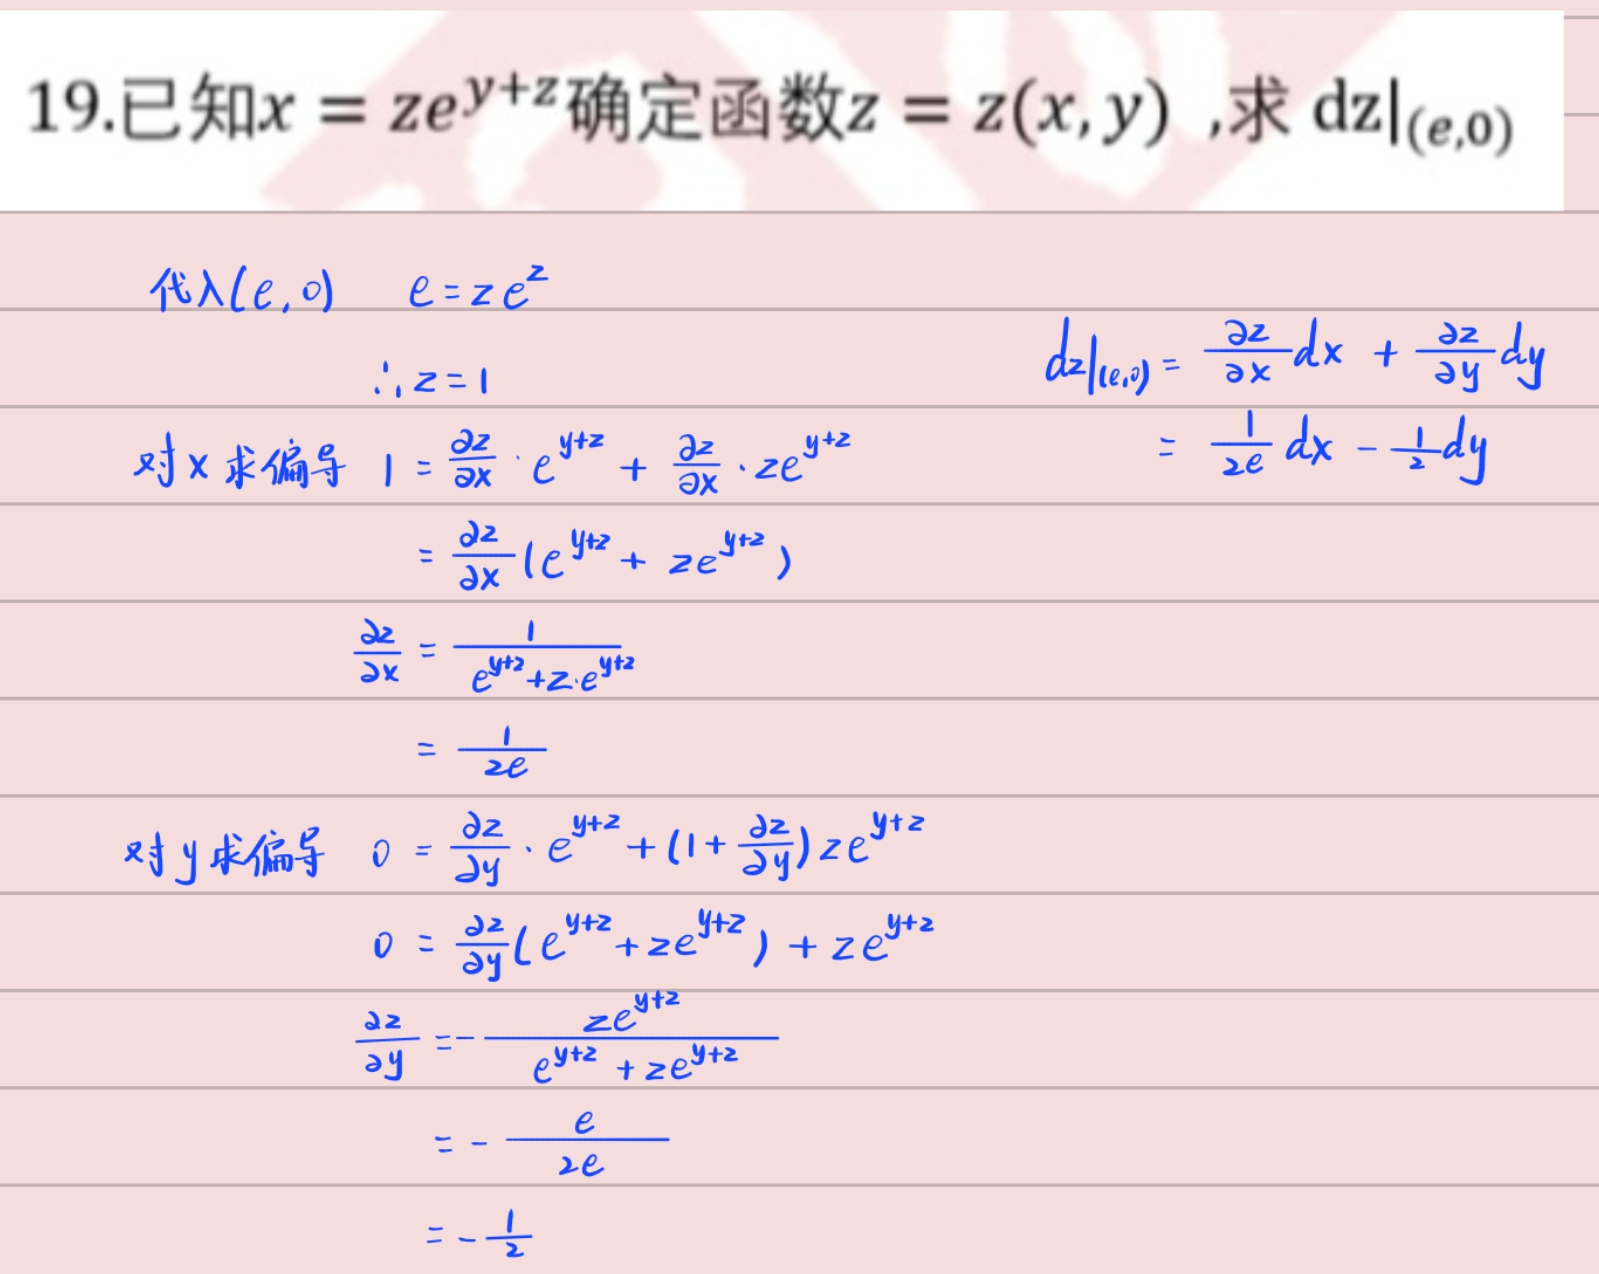 19.已知x = ze^{y+z}确定函数z = z(x, y) ,求 dz|_{(e,0)}
代入(e,0) e = ze^z
∴ z = 1
对x求偏导 1 = ∂z/∂x · e^{y+z} + ∂z/∂x · ze^{y+z}
= ∂z/∂x (e^{y+z} + ze^{y+z})
∂z/∂x = 1/(e^{y+z} + z·e^{y+z})
= 1/2e
对y求偏导 0 = ∂z/∂y · e^{y+z} + (1 + ∂z/∂y) ze^{y+z}
0 = ∂z/∂y (e^{y+z} + ze^{y+z}) + ze^{y+z}
∂z/∂y = - ze^{y+z}/(e^{y+z} + ze^{y+z})
= - e/2e
= - 1/2
dz|_{(e,0)} = ∂z/∂x dx + ∂z/∂y dy
= 1/2e dx - 1/2 dy